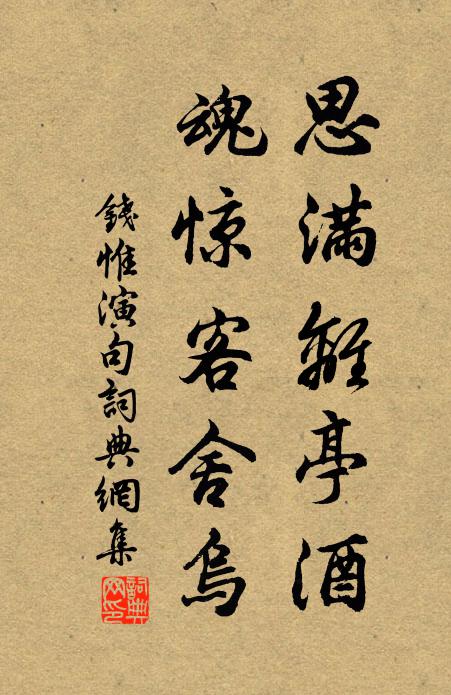 思满離亭酒
魂惊客舍烏
錢惟演句詞典網集
詞典网印